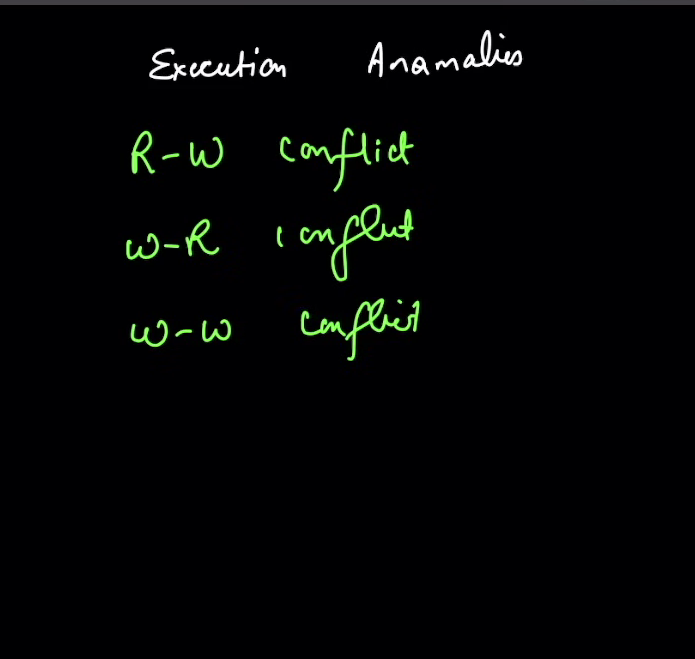 Execution Anamalies
R-W conflict
W-R conflict
W-W conflict